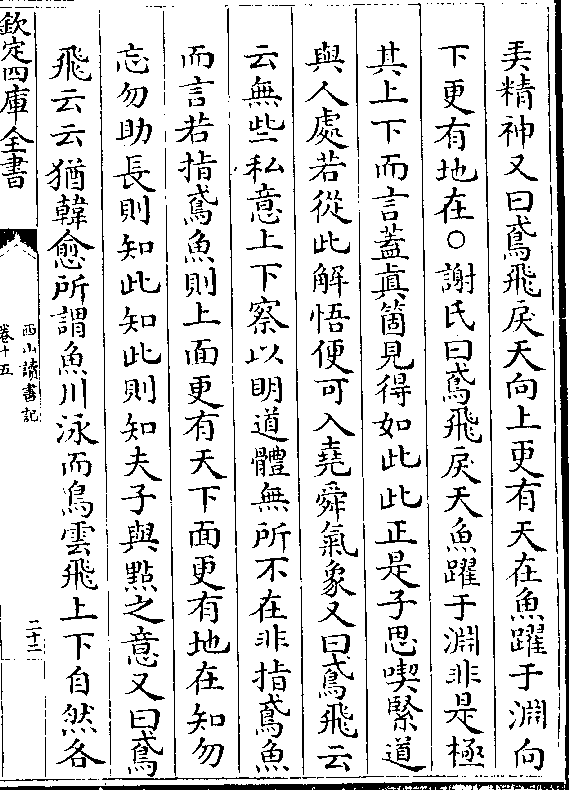 弄精神又曰鳶飛戾天向上更有天在魚躍于淵向
下更有地在○謝氏曰鳶飛戾天魚躍于淵非是極
其上下而言蓋真箇見得如此此正是子思喫緊道
與人處若從此解悟便可入堯舜氣象又曰鳶飛云
云無些私意上下察以明道體無所不在非指鳶魚
而言若指鳶魚則上面更有天下面更有地在知勿
忘勿助長則知此知此則知夫子與點之意又曰鳶
飛云云猶韓愈所謂魚川泳而鳥雲飛上下自然各
欽定四庫全書
西山讀書記
卷十五
二十二